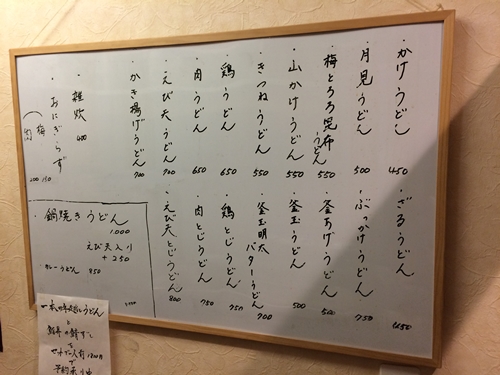 ・かけうどん 450
・月見うどん 500
・梅とろろ昆布うどん 550
・山かけうどん 550
・きつねうどん 550
・鶏うどん 650
・肉うどん 650
・えび天うどん 700
・かき揚げうどん 700
・雑炊 400
・おにぎらず
(梅 150
肉 200
・ざるうどん
・ぶっかけうどん 750
・釜あげうどん 500
・釜玉うどん 500
・釜玉明太バターうどん 700
・鶏とじうどん 750
・肉とじうどん 750
・えび天とじうどん 800
・鍋焼きうどん
1,000
えび天入り
+250
・カレーうどん 850